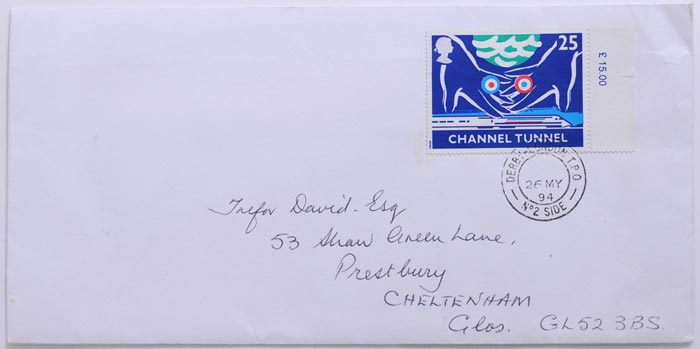 25
£15.00
CHANNEL TUNNEL
DERBY-LONDON T.P.O
26 MY
94
Nº2 SIDE
Trefor David. Esq
53 Shaw Green Lane,
Prestbury
CHELTENHAM
Glos. GL52 3BS.